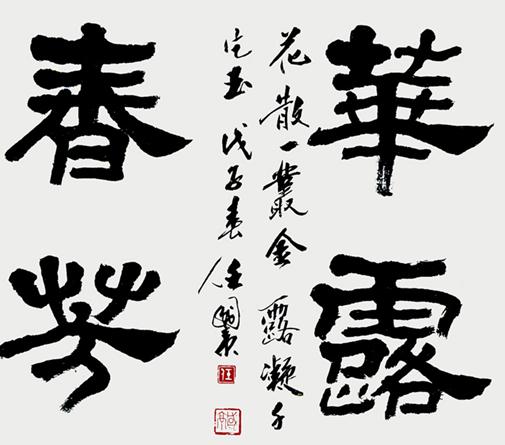 華露
花散一叢金 露凝千
片玉 戊子春 汪國真
汪
春芳